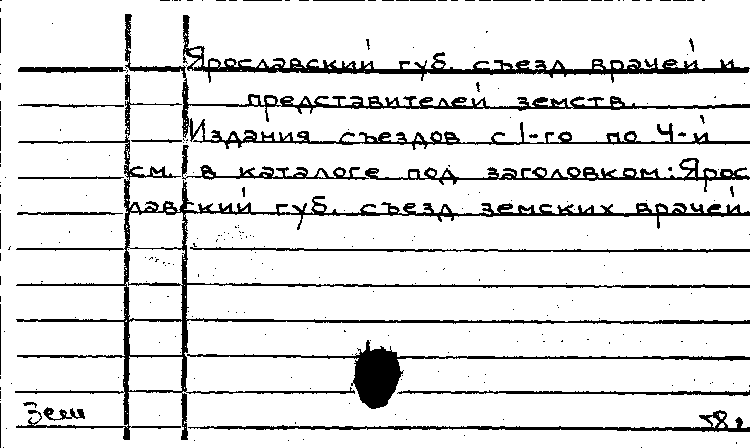 Ярославский губ. съезд врачей и
представителей земств.
Издания съездов с 1-го по 4-й
см. в каталоге под заголовком: Ярос
лавский губ. съезд земских врачей
Зем
58г